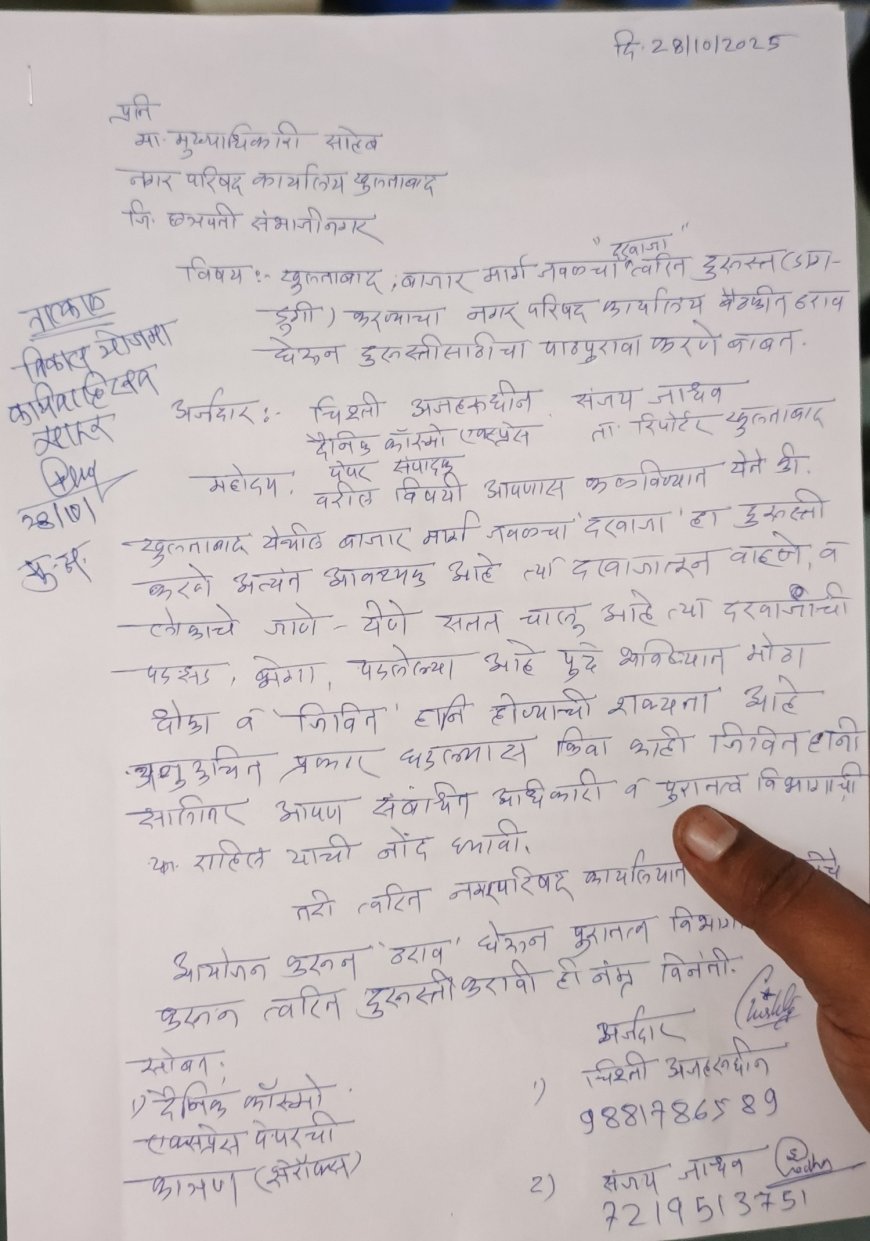 दि. 28/10/2025
प्रति
मा. मुख्याधिकारी साहेब
नगर परिषद कार्यालय खुलताबाद
जि. छत्रपती संभाजीनगर
विषय :- खुलताबाद, बाजार मार्ग जवळचा "दरवाजा" त्वरित दुरुस्त (डाग-
डुगी) करण्याचा नगर परिषद कार्यालय बैठकीत ठराव
घेऊन दुरुस्तीसाठीचा पाठपुरावा करणे बाबत.
तात्काळ
विकास योजना
28/10/
अर्जदार :- चिश्ती अजहरुद्दीन, संजय जाधव
दैनिक कॉस्मो एक्स्प्रेस ता. रिपोर्टर खुलताबाद
पेपर संपादक
महोदय,
वरील विषयी आपणास कळविण्यात येते की.
खुलताबाद येथील बाजार मार्ग जवळचा 'दरवाजा' हा दुरुस्ती
करणे अत्यंत आवश्यक आहे त्या दरवाजातून वाहने, व
लोकाचे जाणे - येणे सतत चालू आहे त्या दरवाजाची
पडझड, भेगा, पडलेल्या आहे पुढे भविष्यात मोठा
धोका व 'जिवित' हानि होण्याची शक्यता आहे
प्रकार घडल्यास किंवा काही जिवित हानी
आपण संबंधित अधिकारी व पुरातत्व विभागाची
राहिल याची नोंद घ्यावी.
तरी त्वरित नगरपरिषद कार्यालयात
आयोजन करून 'ठराव' घेऊन पुरातत्व
करून त्वरित दुरुस्ती करावी ही नम्र विनंती.
सोबत:
1) दैनिक कॉस्मो
एक्सप्रेस पेपरची
कात्रण (झेरॉक्स)
अर्जदार
1) चिश्ती अजहरुद्दीन
9881786589
2) संजय जाधव
7219513751